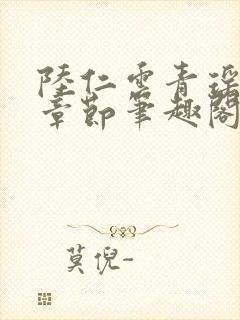 陸仁雲青瑤
章節筆趣閣
莫倪-